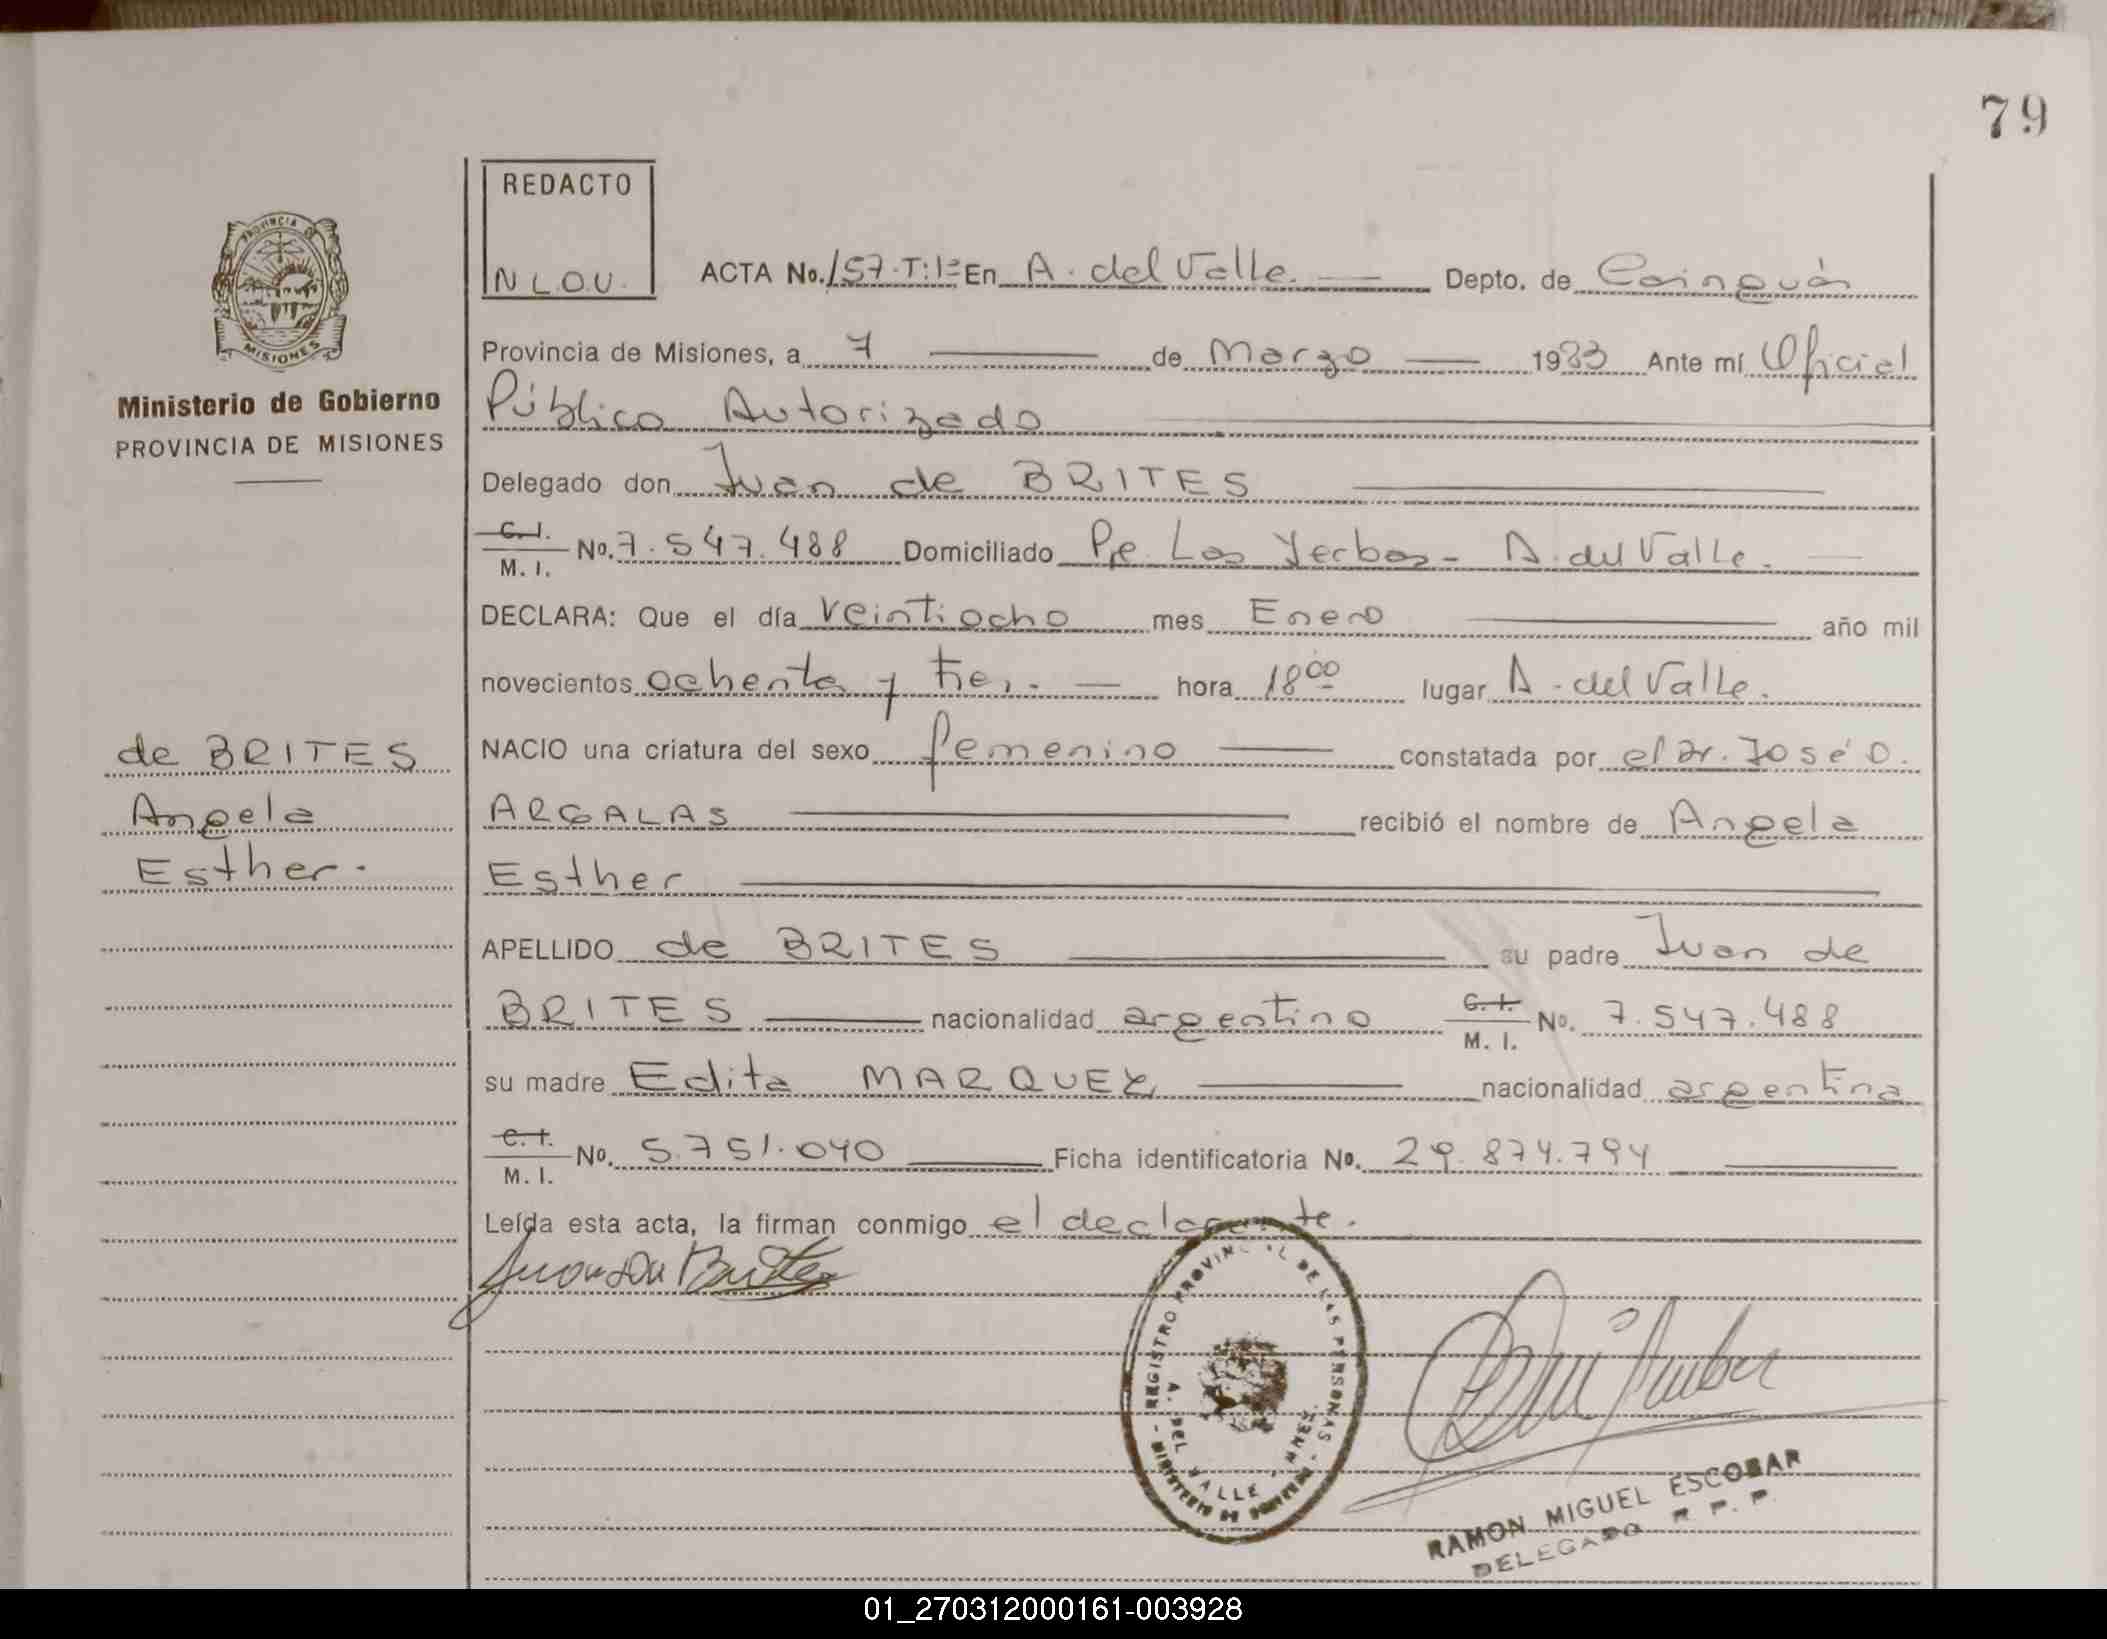 79
REDACTO
N L.O.U.
PROVINCIA DE
MISIONES
Ministerio de Gobierno
PROVINCIA DE MISIONES
ACTA No. 157.T:1º En A. del Valle. Depto. de Cainguás
Provincia de Misiones, a 7 de Marzo 1983 Ante mí Oficial
Público Autorizado
Delegado don Juan de BRITES
C. I. / M. I. No. 7.547.488 Domiciliado Pje. Las Yerbas - A. del Valle.
DECLARA: Que el día veintiocho mes Enero año mil
novecientos ochenta y tres. hora 18 00 lugar A. del Valle.
de BRITES
Angela
Esther.
NACIO una criatura del sexo femenino constatada por el Dr. José O.
ARGALAS recibió el nombre de Angela
Esther
APELLIDO de BRITES su padre Juan de
BRITES nacionalidad argentino C. I. / M. I. No. 7.547.488
su madre Edita MARQUEZ nacionalidad argentina
C. I. / M. I. No. 5.751.040 Ficha identificatoria No. 29.874.794
Leída esta acta, la firman conmigo el declarante.
REGISTRO PROVINCIAL DE LAS PERSONAS
A. DEL VALLE
RAMON MIGUEL ESCOBAR
DELEGADO R. P. P.
01_270312000161-003928